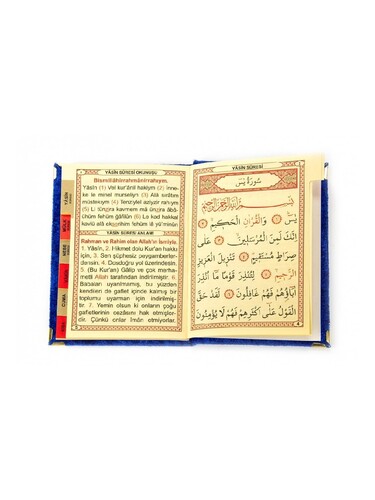 YÂSÎN SÛRESİ OKUNUŞU
Bismillâhirrahmânirrahîym.
Yâsîn (1) Vel kur'ânil hakiym (2) inne-
ke le minel murseliyn (3) Alâ sırâtim
müstekıym (4) Tenziylel aziyzir rahıym
(5) Li tünzira kavmem mâ ünzira âbâ-
ühüm fehüm ğâfilûn (6) Le kad hakkal
kavlü alâ ekserihim fehüm lâ yü'minûn
YÂSÎN SÛRESİ ANLAMI
Rahman ve Rahim olan Allah'ın ismiyle.
1. Yâsîn, 2. Hikmet dolu Kur'an hakkı
için, 3. Sen şüphesiz peygamberler-
densin. 4. Dosdoğru yol üzerindesin.
5. (Bu Kur'an) Gâlip ve çok merha-
metli Allah tarafından indirilmiştir. 6.
Babaları uyarılmamış, bu yüzden
kendileri de gaflet içinde kalmış bir
toplumu uyarman için indirilmiş-
tir. 7. Yemin olsun ki onların çoğu
gafletlerinin cezasını hak etmişler-
dir. Çünkü onlar îman etmiyorlar.
YÂSÎN
CUMA
YÂSÎN SÛRESİ
سُورَةُ يٰسٓ
بِسْمِ اللّٰهِ الرَّحْمٰنِ الرَّحِيمِ
يٰسٓ ﴿١﴾ وَالْقُرْاٰنِ الْحَكِيمِ ﴿٢﴾
اِنَّكَ لَمِنَ الْمُرْسَلِينَ ﴿٣﴾ عَلٰى
صِرَاطٍ مُسْتَقِيمٍ ﴿٤﴾ تَنْزِيلَ الْعَزِيزِ
الرَّحِيمِ ﴿٥﴾ لِتُنْذِرَ قَوْمًا مَٓا اُنْذِرَ
اٰبَٓاؤُهُمْ فَهُمْ غَافِلُونَ ﴿٦﴾ لَقَدْ حَقَّ
الْقَوْلُ عَلٰٓى اَكْثَرِهِمْ فَهُمْ لَا يُؤْمِنُونَ